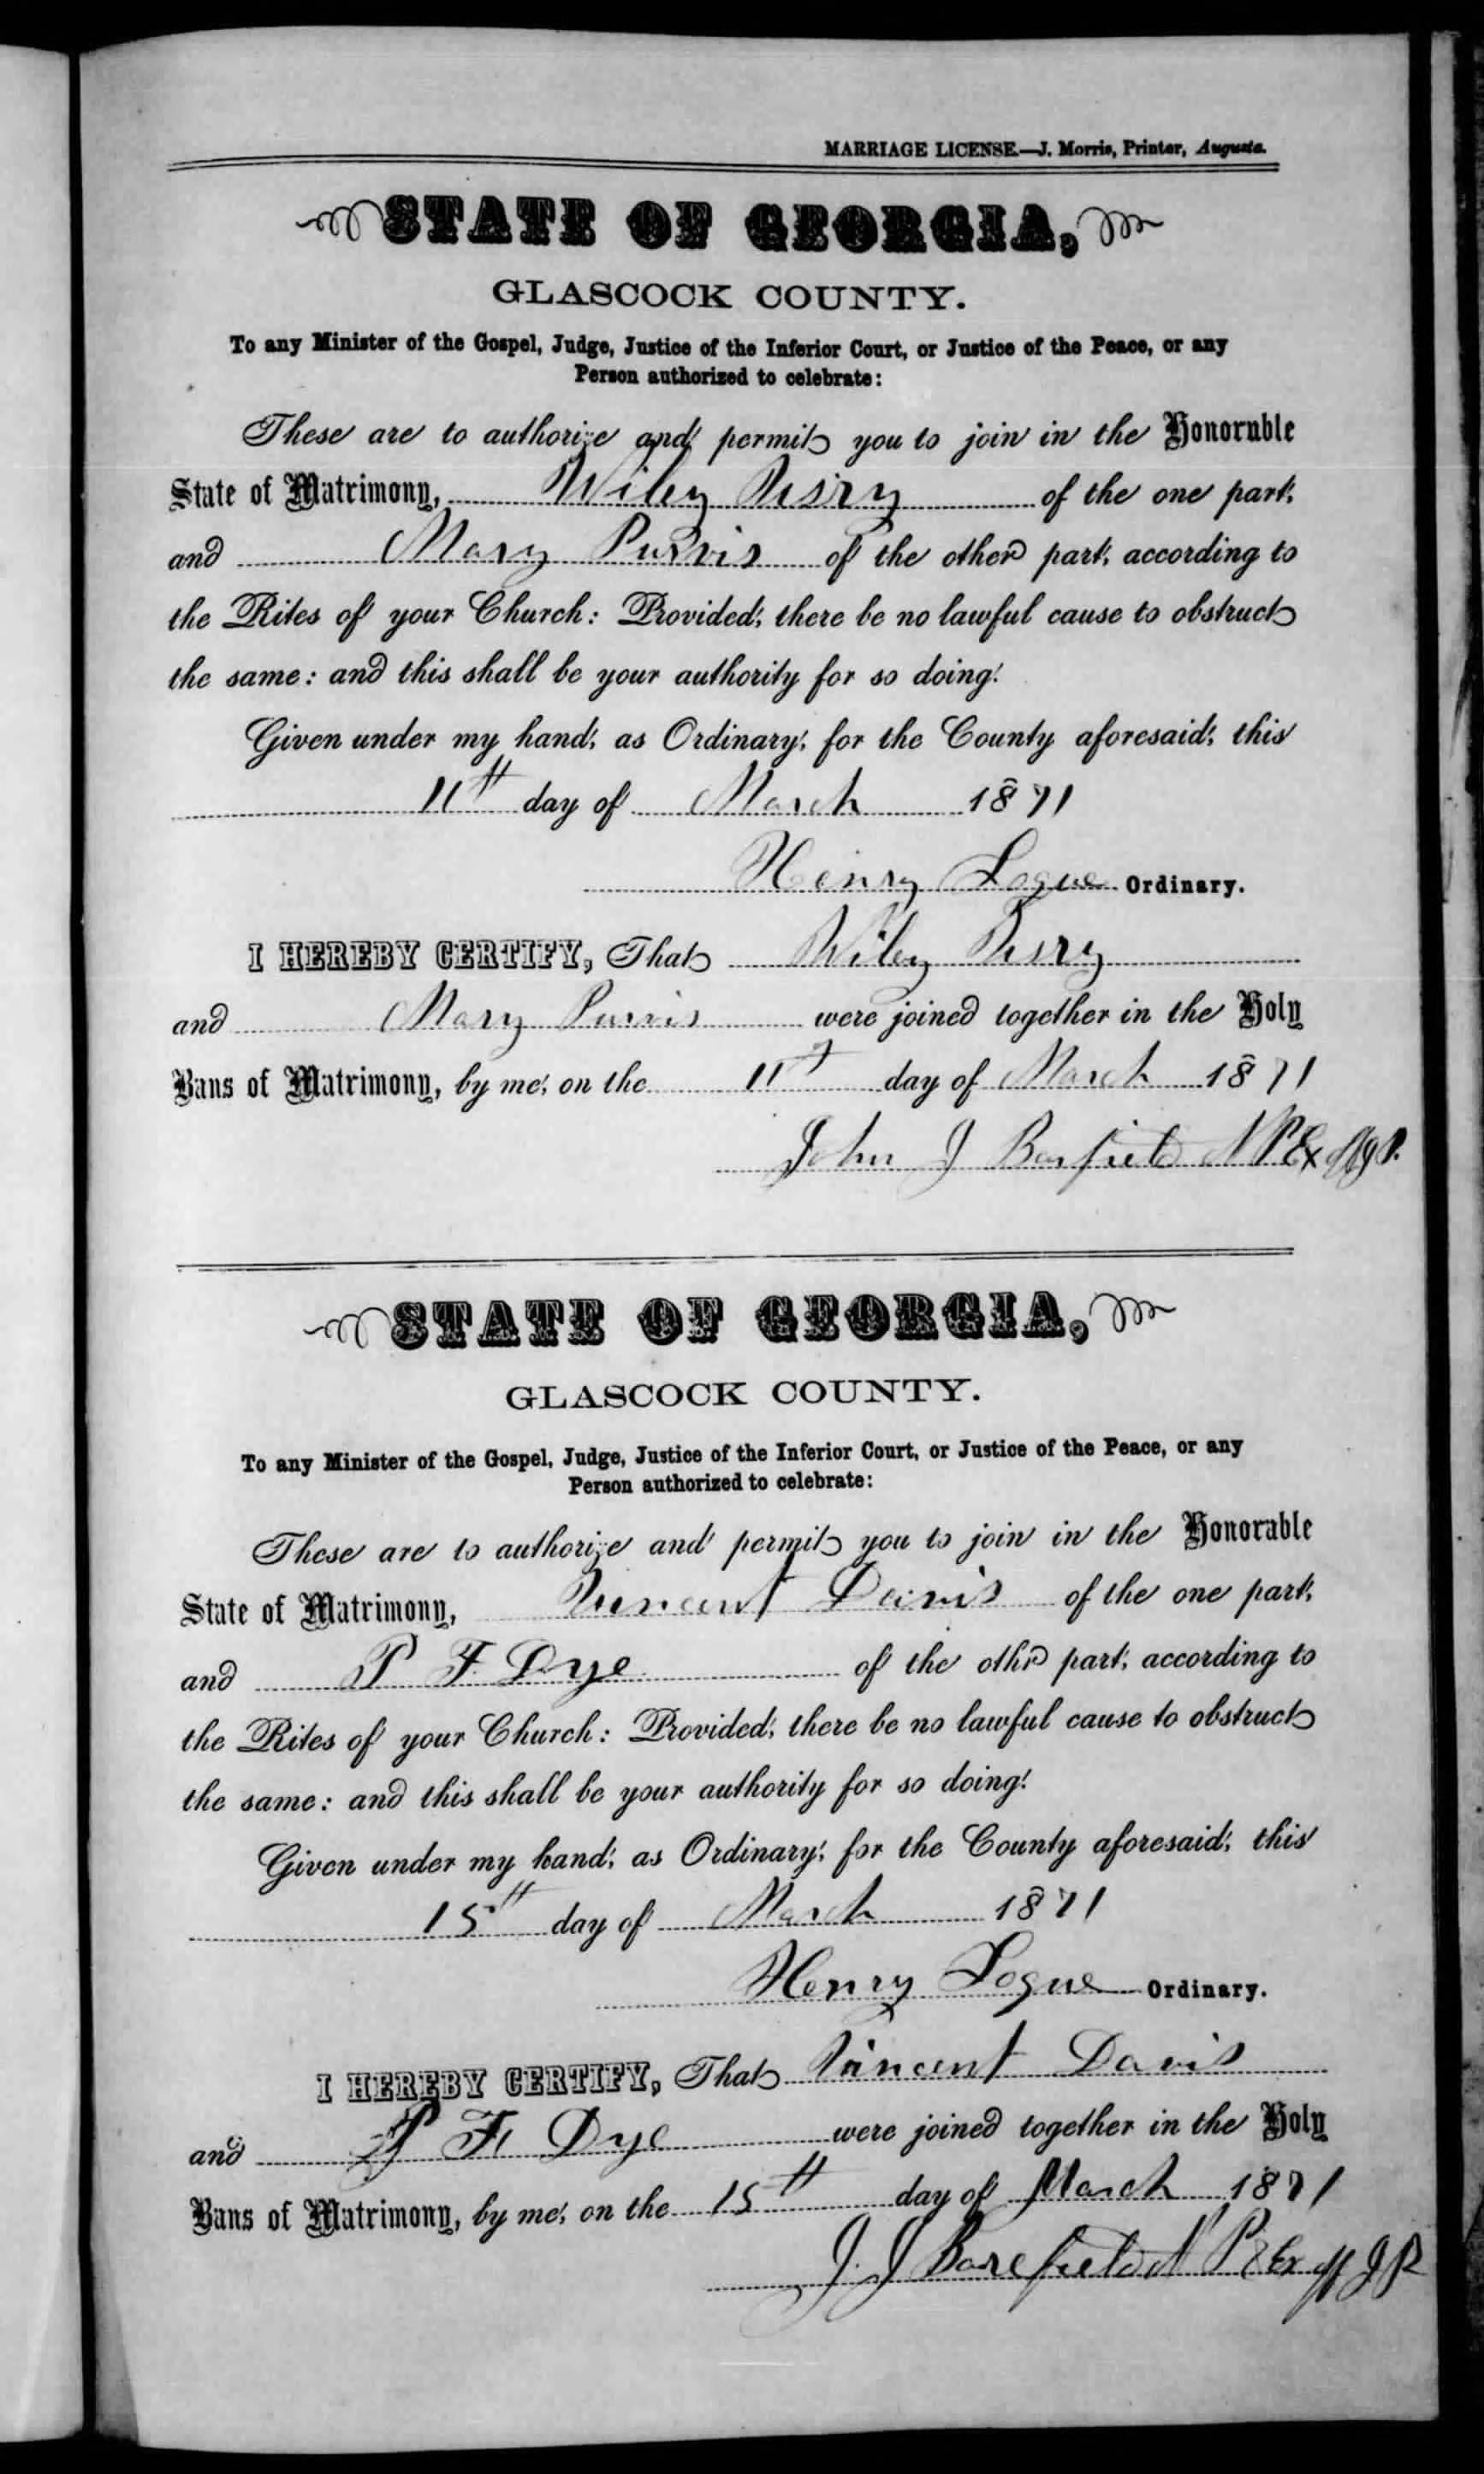 MARRIAGE LICENSE.—J. Morris, Printer, Augusta.
STATE OF GEORGIA,
GLASCOCK COUNTY.
To any Minister of the Gospel, Judge, Justice of the Inferior Court, or Justice of the Peace, or any
Person authorized to celebrate:
These are to authorize and permit you to join in the Honorable
State of Matrimony, Wiley Perry of the one part,
and Mary Purvis of the other part, according to
the Rites of your Church: Provided, there be no lawful cause to obstruct
the same: and this shall be your authority for so doing.
Given under my hand, as Ordinary, for the County aforesaid, this
11th day of March 1871
Henry Logue Ordinary.
I HEREBY CERTIFY, That Wiley Perry
and Mary Purvis were joined together in the Holy
Bans of Matrimony, by me, on the 11th day of March 1871
John J Barfield N P Ex off J P.
STATE OF GEORGIA,
GLASCOCK COUNTY.
To any Minister of the Gospel, Judge, Justice of the Inferior Court, or Justice of the Peace, or any
Person authorized to celebrate:
These are to authorize and permit you to join in the Honorable
State of Matrimony, Vincent Davis of the one part,
and P F Dye of the othr part, according to
the Rites of your Church: Provided, there be no lawful cause to obstruct
the same: and this shall be your authority for so doing.
Given under my hand, as Ordinary, for the County aforesaid, this
15th day of March 1871
Henry Logue Ordinary.
I HEREBY CERTIFY, That Vincent Davis
and P F Dye were joined together in the Holy
Bans of Matrimony, by me, on the 15th day of March 1871
J. J Barefield N P & Ex off J P